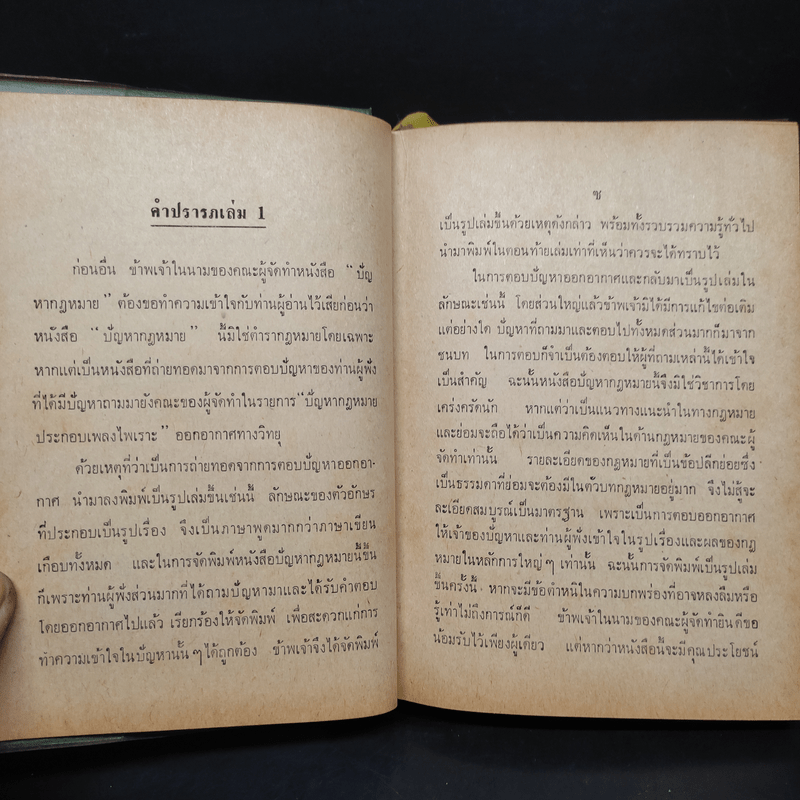 คำปรารภเล่ม 1
ก่อนอื่น ข้าพเจ้าในนามของคณะผู้จัดทำหนังสือ “ปัญ
หากฎหมาย” ต้องขอทำความเข้าใจกับท่านผู้อ่านไว้เสียก่อนว่า
หนังสือ “ปัญหากฎหมาย” นี้มิใช่ตำรากฎหมายโดยเฉพาะ
หากแต่เป็นหนังสือที่ถ่ายทอดมาจากการตอบปัญหาของท่านผู้ฟัง
ที่ได้มีปัญหาถามมายังคณะของผู้จัดทำในรายการ“ปัญหากฎหมาย
ประกอบเพลงไพเราะ” ออกอากาศทางวิทยุ
ด้วยเหตุที่ว่าเป็นการถ่ายทอดจากการตอบปัญหาออกอา-
กาศ นำมาลงพิมพ์เป็นรูปเล่มขึ้นเช่นนี้ ลักษณะของตัวอักษร
ที่ประกอบเป็นรูปเรื่อง จึงเป็นภาษาพูดมากกว่าภาษาเขียน
เกือบทั้งหมด และในการจัดพิมพ์หนังสือปัญหากฎหมายนี้ขึ้น
ก็เพราะท่านผู้ฟังส่วนมากที่ได้ถามปัญหามาและได้รับคำตอบ
โดยออกอากาศไปแล้ว เรียกร้องให้จัดพิมพ์ เพื่อสะดวกแก่การ
ทำความเข้าใจในปัญหานั้น ๆ ได้ถูกต้อง ข้าพเจ้าจึงได้จัดพิมพ์
ซ
เป็นรูปเล่มขึ้นด้วยเหตุดังกล่าว พร้อมทั้งรวบรวมความรู้ทั่วไป
นำมาพิมพ์ในตอนท้ายเล่มเท่าที่เห็นว่าควรจะได้ทราบไว้
ในการตอบปัญหาออกอากาศและกลับมาเป็นรูปเล่มใน
ลักษณะเช่นนี้ โดยส่วนใหญ่แล้วข้าพเจ้ามิได้มีการแก้ไขต่อเติม
แต่อย่างใด ปัญหาที่ถามมาและตอบไปทั้งหมดส่วนมากก็มาจาก
ชนบท ในการตอบก็จำเป็นต้องตอบให้ผู้ที่ถามเหล่านี้ได้เข้าใจ
เป็นสำคัญ ฉะนั้นหนังสือปัญหากฎหมายนี้จึงมิใช่วิชาการโดย
เคร่งครัดนัก หากแต่ว่าเป็นแนวทางแนะนำในทางกฎหมาย
และย่อมจะถือได้ว่าเป็นความคิดเห็นในด้านกฎหมายของคณะผู้
จัดทำเท่านั้น รายละเอียดของกฎหมายที่เป็นข้อปลีกย่อยซึ่ง
เป็นธรรมดาที่ย่อมจะต้องมีในตัวบทกฎหมายอยู่มาก จึงไม่สู้จะ
ละเอียดสมบูรณ์เป็นมาตรฐาน เพราะเป็นการตอบออกอากาศ
ให้เจ้าของปัญหาและท่านผู้ฟังเข้าใจในรูปเรื่องและผลของกฎ
หมายในหลักการใหญ่ ๆ เท่านั้น ฉะนั้นการจัดพิมพ์เป็นรูปเล่ม
ขึ้นครั้งนี้ หากจะมีข้อตำหนิในความบกพร่องที่อาจหลงลืมหรือ
รู้เท่าไม่ถึงการณ์ก็ดี ข้าพเจ้าในนามของคณะผู้จัดทำยินดีขอ
น้อมรับไว้เพียงผู้เดียว แต่หากว่าหนังสือนี้จะมีคุณประโยชน์